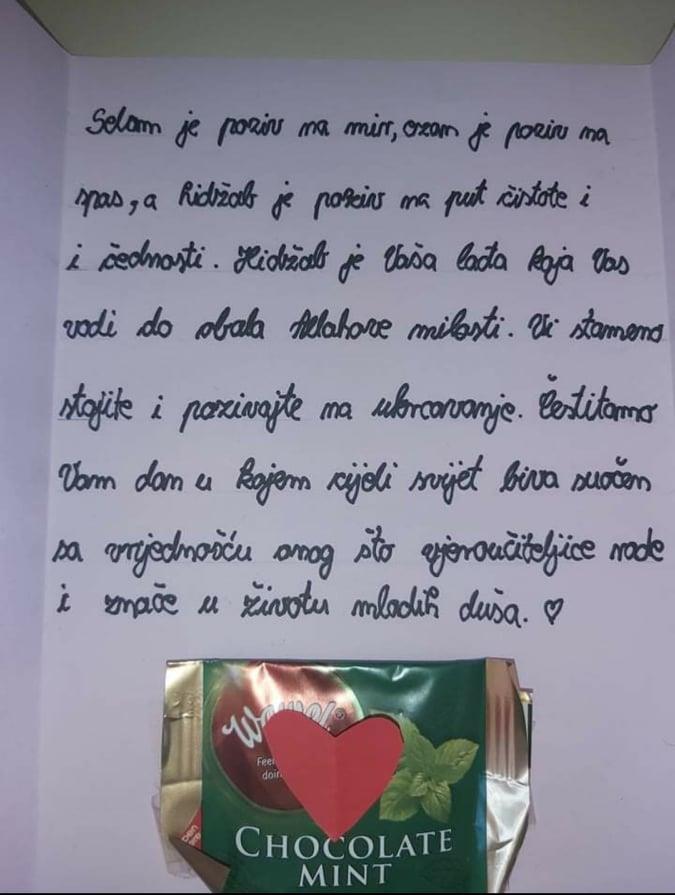 Selam je poziv na mir, ezan je poziv na
spas, a hidžab je poziv na put čistote i
i čednosti. Hidžab je Vaša lađa koja Vas
vodi do obala Allahove milosti. Vi stameno
stojite i pozivajte na ukrcavanje. Čestitamo
Vam dan u kojem cijeli svijet biva suočen
sa vrijednošću onog što vjeroučiteljice rade
i znače u životu mladih duša. ♡
Wawel
Fee
doin
CHOCOLATE
MINT